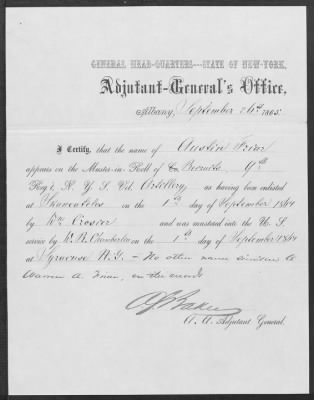 GENERAL HEAD-QUARTERS---STATE OF NEW-YORK,
Adjutant-General's Office,
Albany, September 26th 1865
I Certify, that the name of Austin Frier
appears on the Muster-in Roll of Recruits, 9th
Reg't, N. Y. S. Vol. Artillery, as having been enlisted
at Skaneateles on the 1st day of September 1864
by Wm Crosier and was mustered into the U. S.
service by W. B. Chamberlin on the 1st day of September 1864
at Syracuse N.Y. - No other name similar to
Warren A. Frier, on the records
Adjutant General.